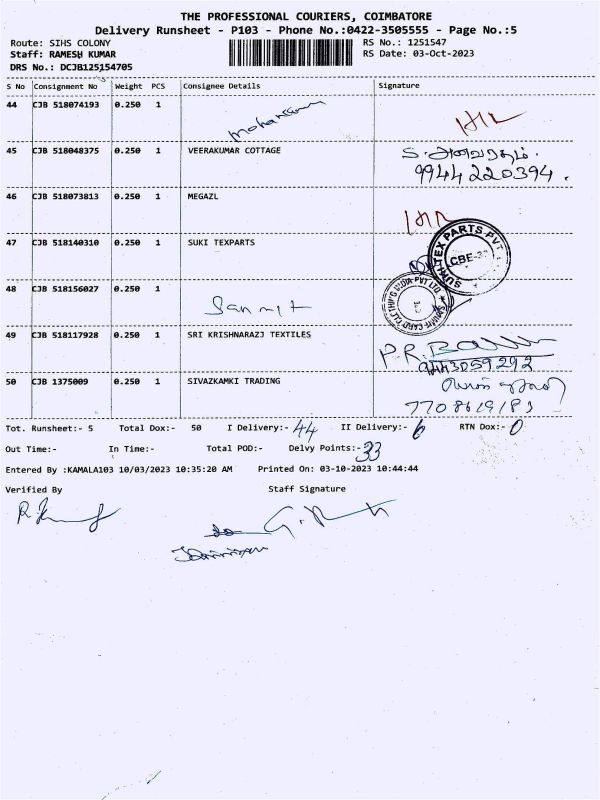 THE PROFESSIONAL COURIERS, COIMBATORE
Delivery Runsheet - P103 - Phone No.:0422-3505555 - Page No.:5
Route: SIHS COLONY RS No.: 1251547
Staff: RAMESH KUMAR RS Date: 03-Oct-2023
DRS No.: DCJB125154705
S No Consignment No Weight PCS Consignee Details Signature
44 CJB 518074193 0.250 1
45 CJB 518048375 0.250 1 VEERAKUMAR COTTAGE
9944220394.
46 CJB 518073813 0.250 1 MEGAZL
47 CJB 518140310 0.250 1 SUKI TEXPARTS
48 CJB 518156027 0.250 1
49 CJB 518117928 0.250 1 SRI KRISHNARAZJ TEXTILES
9443059292
50 CJB 1375009 0.250 1 SIVAZKAMKI TRADING
Tot. Runsheet:- 5 Total Dox:- 50 I Delivery:- 44 II Delivery:- 6 RTN Dox:- 0
Out Time:- In Time:- Total POD:- Delvy Points:- 33
Entered By :KAMALA103 10/03/2023 10:35:20 AM Printed On: 03-10-2023 10:44:44
Verified By Staff Signature